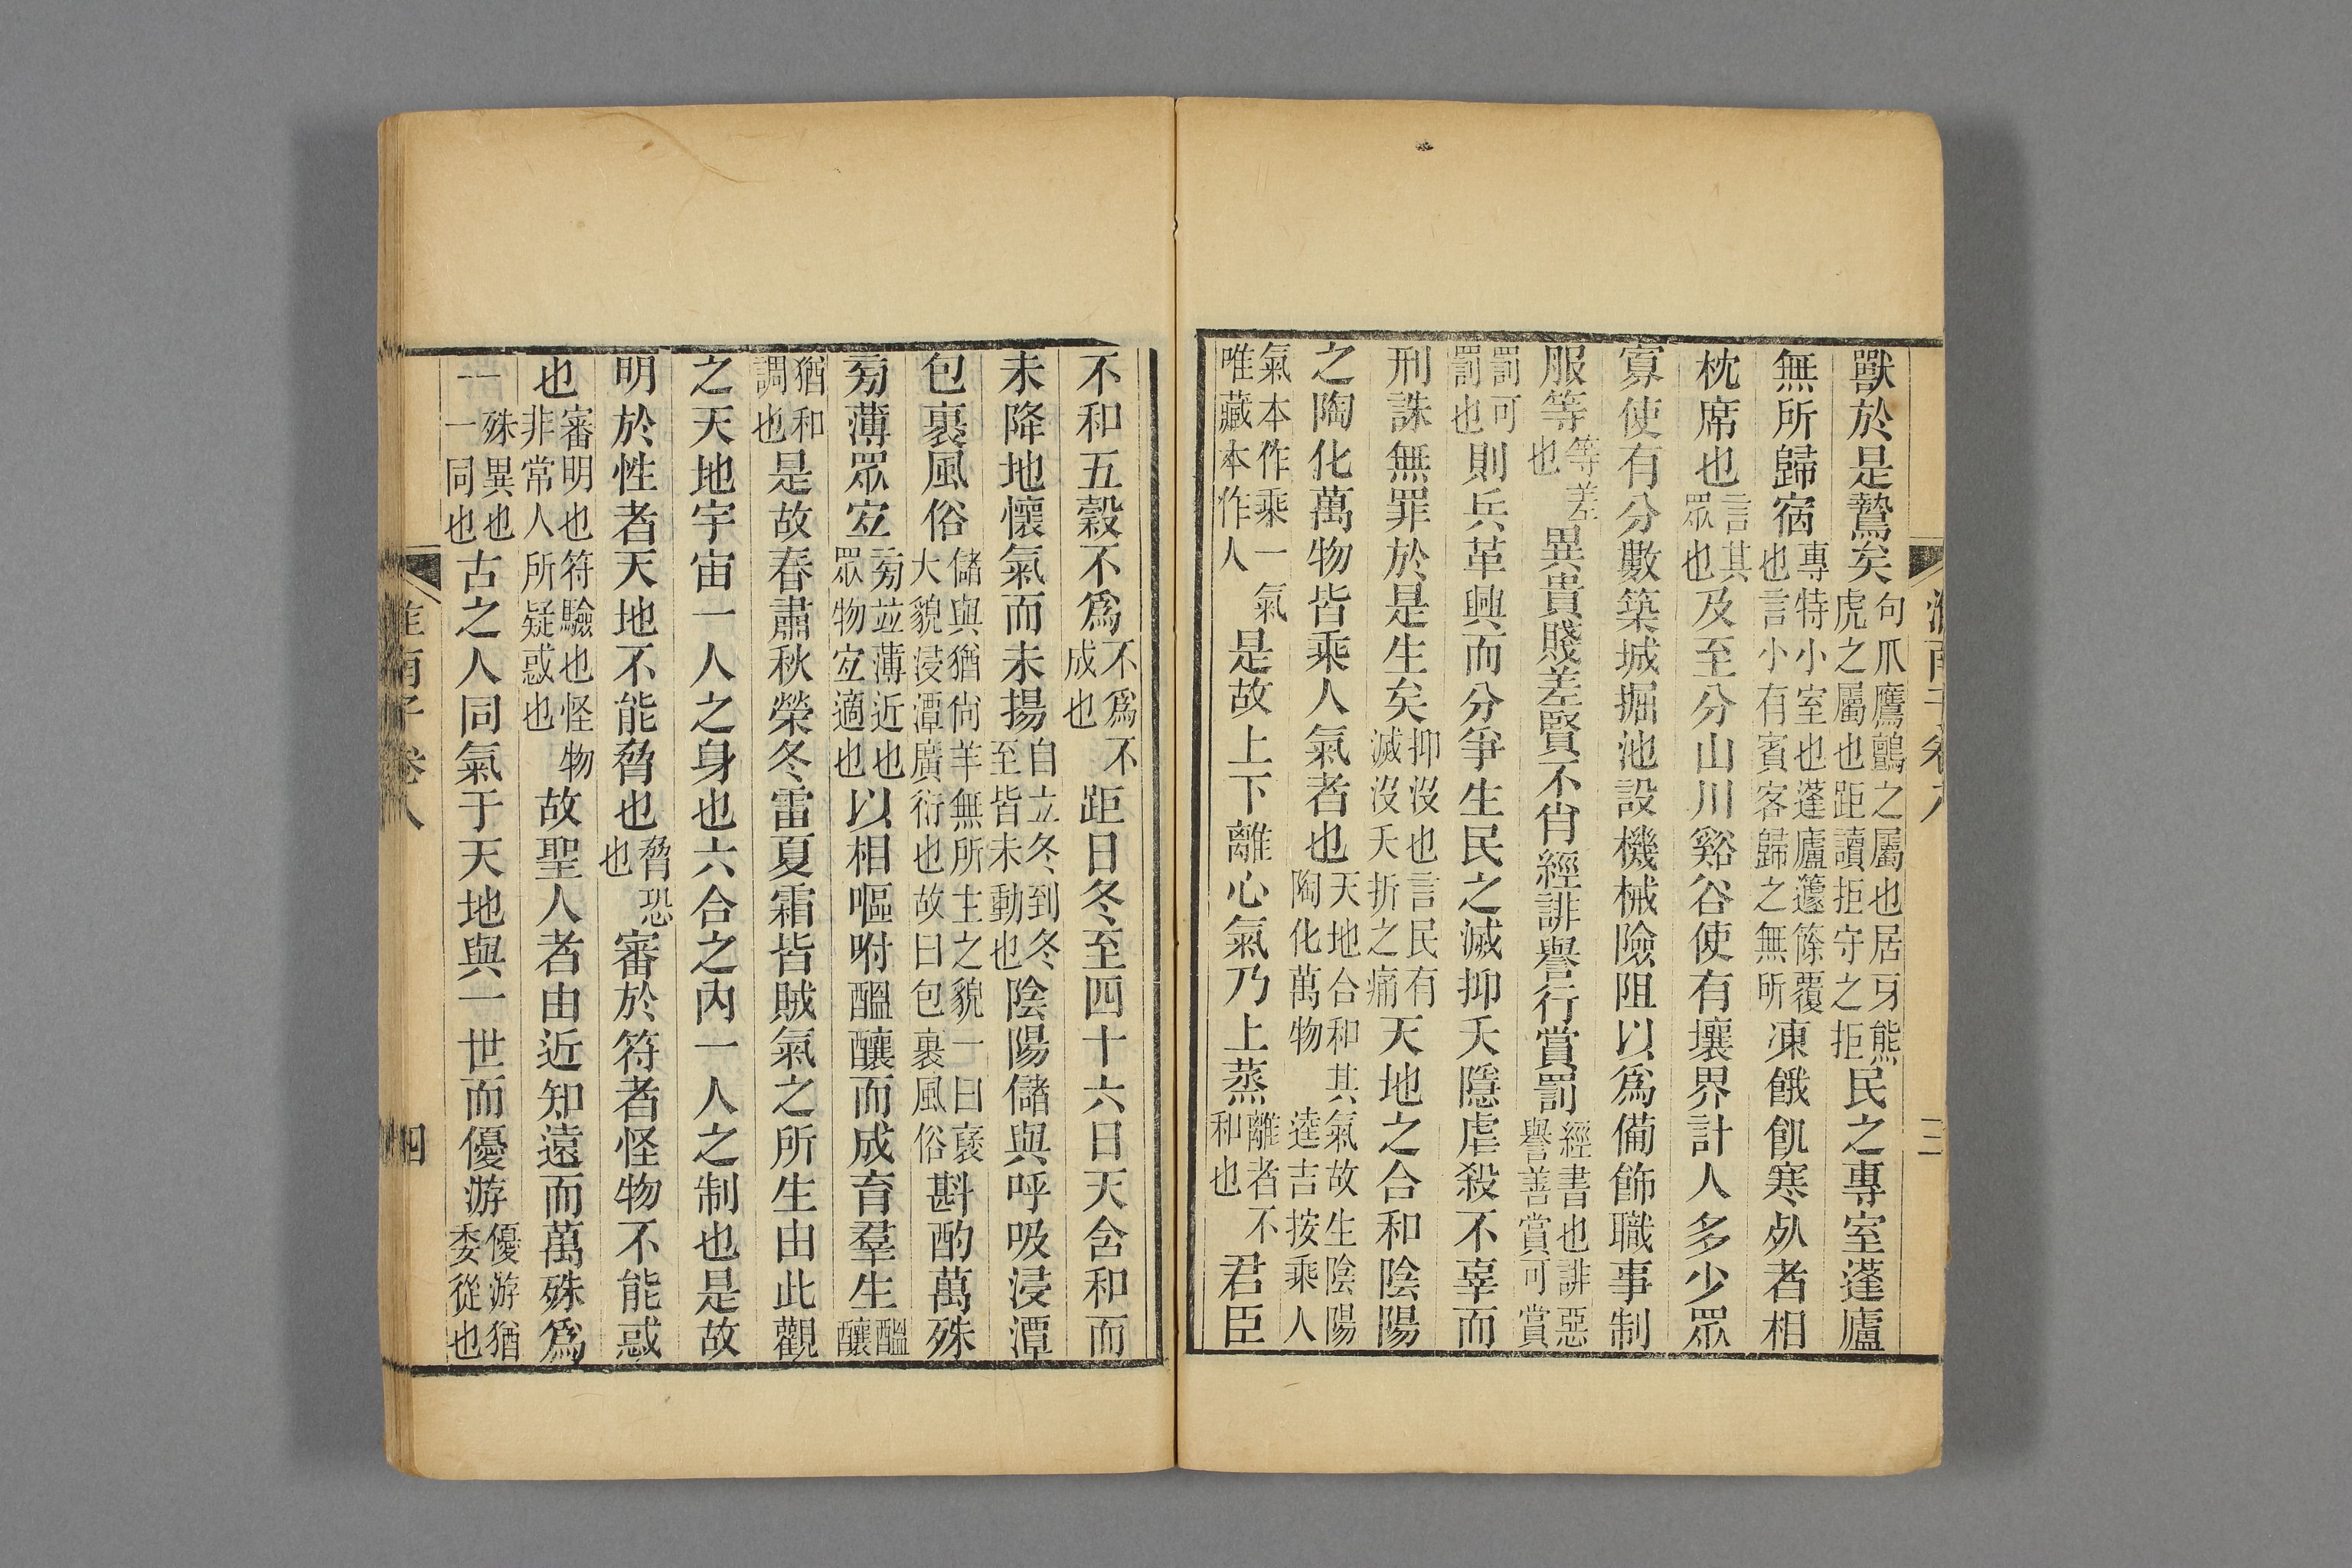 獸於是鷙矣句爪鷹鸇之屬也居牙熊虎之屬也距讀拒守之拒民之專室蓬廬
無所歸宿專特小室也蓬廬籧篨覆也言小有賓客歸之無所凍餓飢寒死者相
枕席也言其眾也及至分山川谿谷使有壤界計人多少眾
寡使有分數築城掘池設機械險阻以爲備飾職事制
服等等差也異貴賤差賢不肖經誹譽行賞罰經書也誹惡譽善賞可賞
罰可罰也則兵革興而分爭生民之滅抑夭隱虐殺不辜而
刑誅無罪於是生矣抑沒也言民有滅沒夭折之痛天地之合和陰陽
之陶化萬物皆乘人氣者也天地合和其氣故生陰陽陶化萬物逵吉按乘人
氣本作乘一氣唯藏本作人是故上下離心氣乃上蒸離者不和也君臣
淮南子卷八
三
不和五穀不爲不爲不成也距日冬至四十六日天含和而
未降地懷氣而未揚自立冬到冬至皆未動也陰陽儲與呼吸浸潭
包裹風俗儲與猶尙羊無所主之貌一曰裵大貌浸潭廣衍也故曰包裹風俗斟酌萬殊
旁薄眾宐旁並薄近也眾物宐適也以相嘔咐醞釀而成育羣生醞釀
猶和調也是故春肅秋榮冬雷夏霜皆賊氣之所生由此觀
之天地宇宙一人之身也六合之內一人之制也是故
明於性者天地不能脅也脅恐也審於符者怪物不能惑
也審明也符驗也怪物非常人所疑惑也故聖人者由近知遠而萬殊爲
一殊異也一同也古之人同氣于天地與一世而優游優游猶委從也
淮南子卷八
四